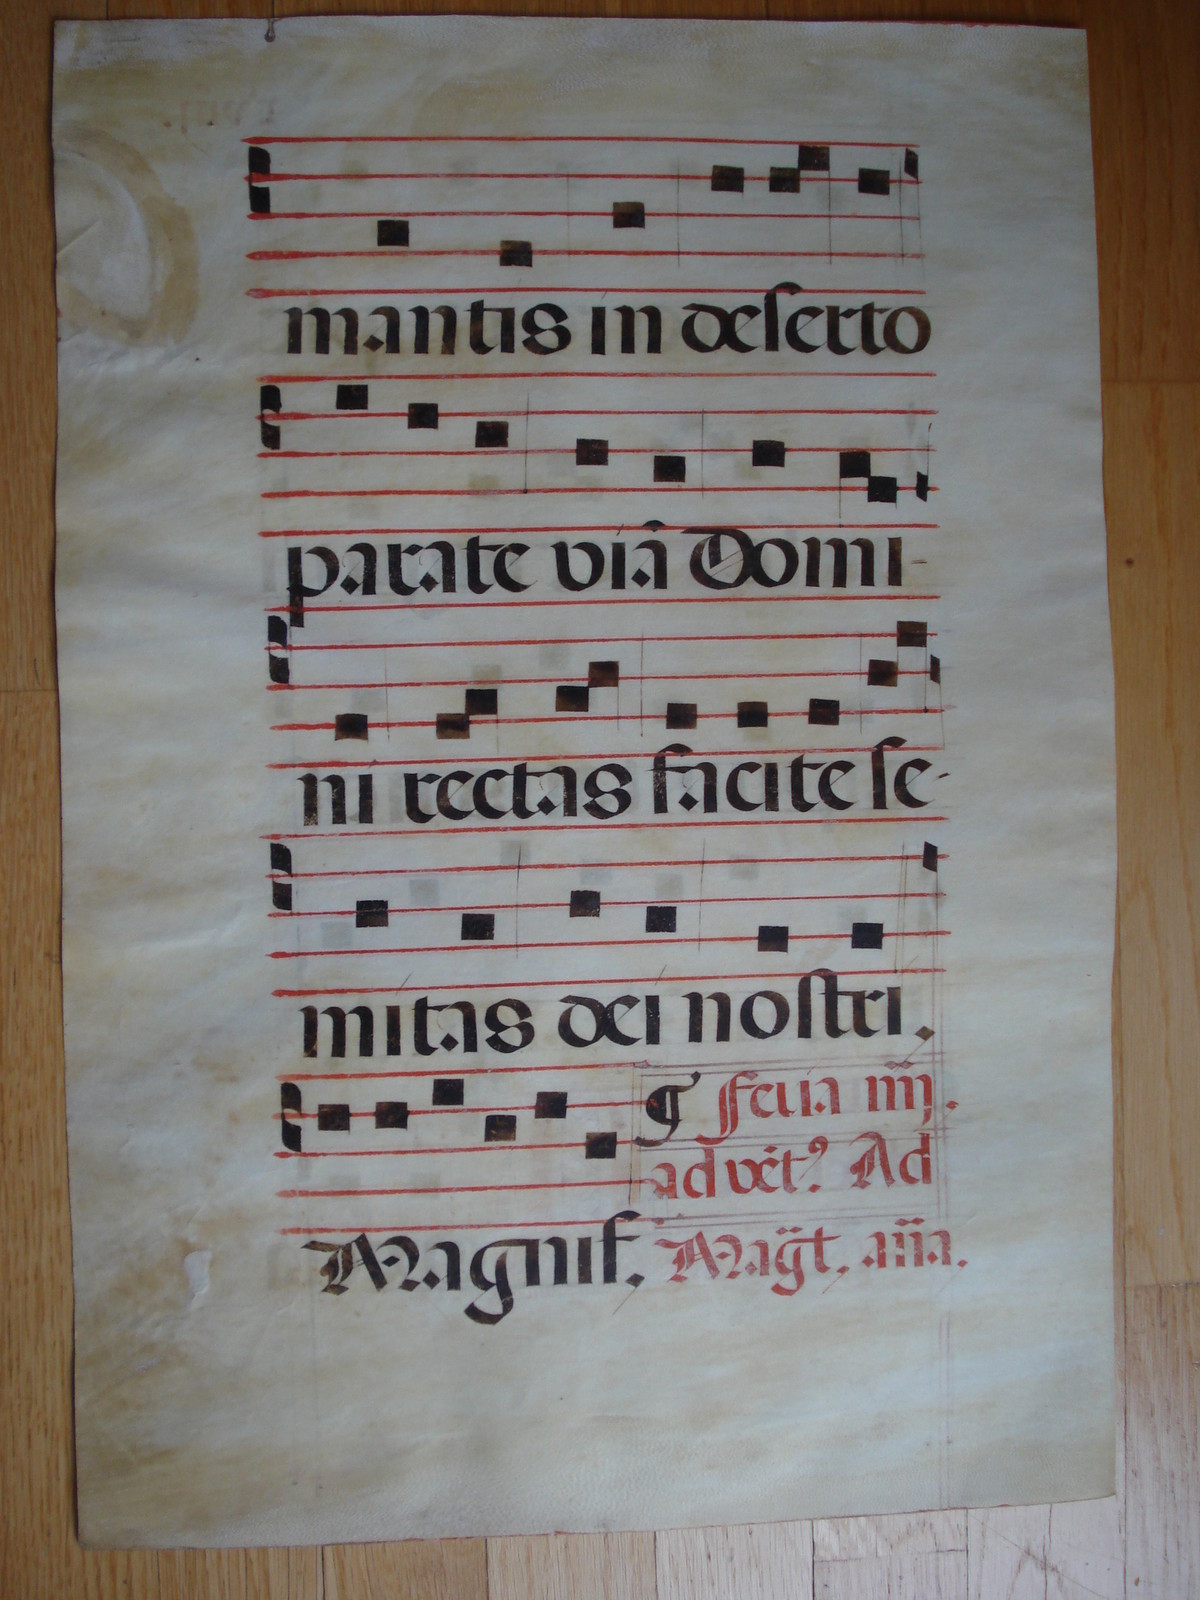 mantis in deserto
parate viã Domi-
ni rectas facite se-
mitas dei nostri.
¶ Feria iiij.
ad vẽt? Ad
Magnif. Mag̃t. añа.